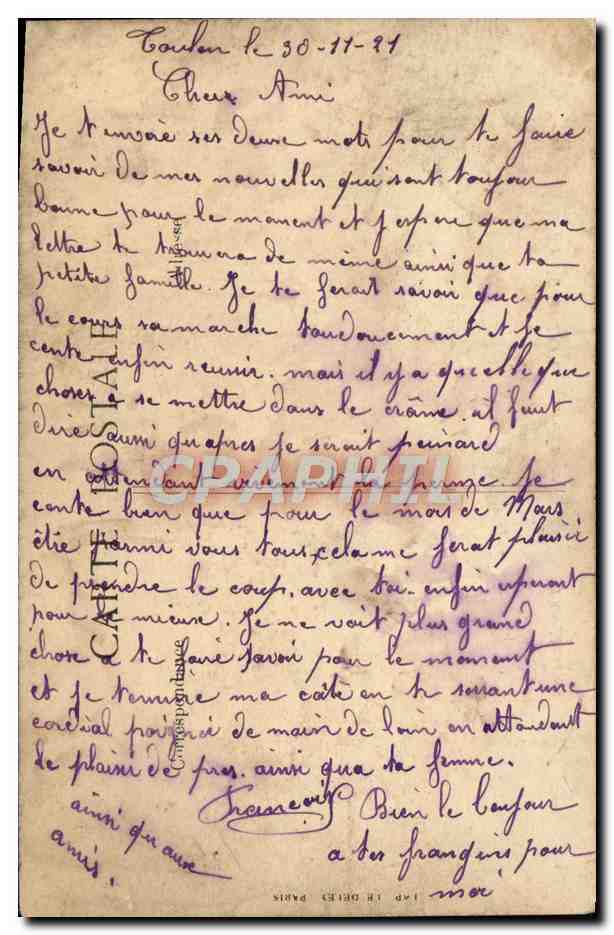 Toulon le 30-11-21
Cher Ami
Je t'envoie ses deuse mots pour te faire
savoir de mes nouvelles qui sont toujour
bonne pour le moment et j'espere que ma
lettre te trouvera de même ainsi que ta
petite famille. Je te ferait savoir que pour
le cours sa marche toudoucement et je
conte enfin reunir. mais il y a quelle que
choses a se mettre dans le crâne. il faut
dire aussi qu'apres je serait peinard
en attendant la perme. Je
conte bien que pour le mois de Mars
être parmi vous tous, cela me ferat plaisir
de prendre le coup. avec toi. enfin
pour le mieuse. Je ne voit plus grand
chose a te faire savoir pour le moment
et je termine ma en te serrant une
cordial poignée de main de loin en attendant
le plaisi de pres. ainsi qua ta femme.
François Bien le bonjour
a tes frangins pour
moi
ainsi qu'aux
amis.
CARTE POSTALE
Correspondance
Adresse
IMP. LE DELEY, PARIS
CPAPHIL